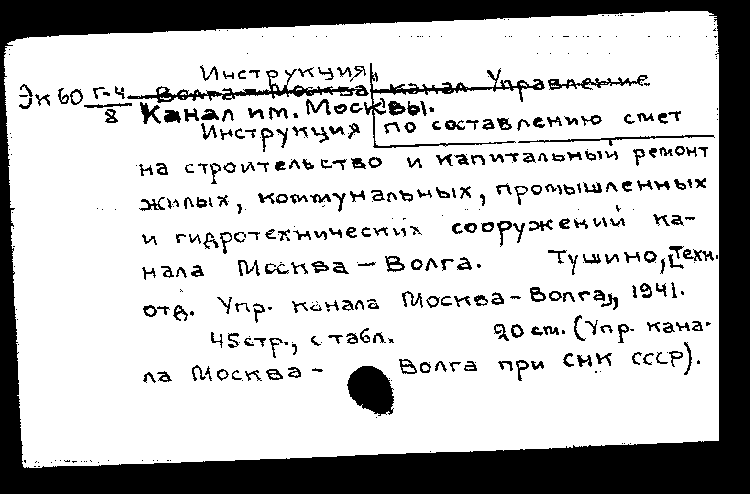 Инструкция
Эк60 Г-4/8 Волга-Москва, канал Управление
Канал им. Москвы.
Инструкция по составлению смет
на строительство и капитальный ремонт
жилых, коммунальных, промышленных
и гидротехнических сооружений ка-
нала Москва-Волга. Тушино, [Техн.
отд. Упр. канала Москва-Волга], 1941.
45стр., с табл. 20 cm. (Упр. кана-
ла Москва- Волга при СНК СССР).